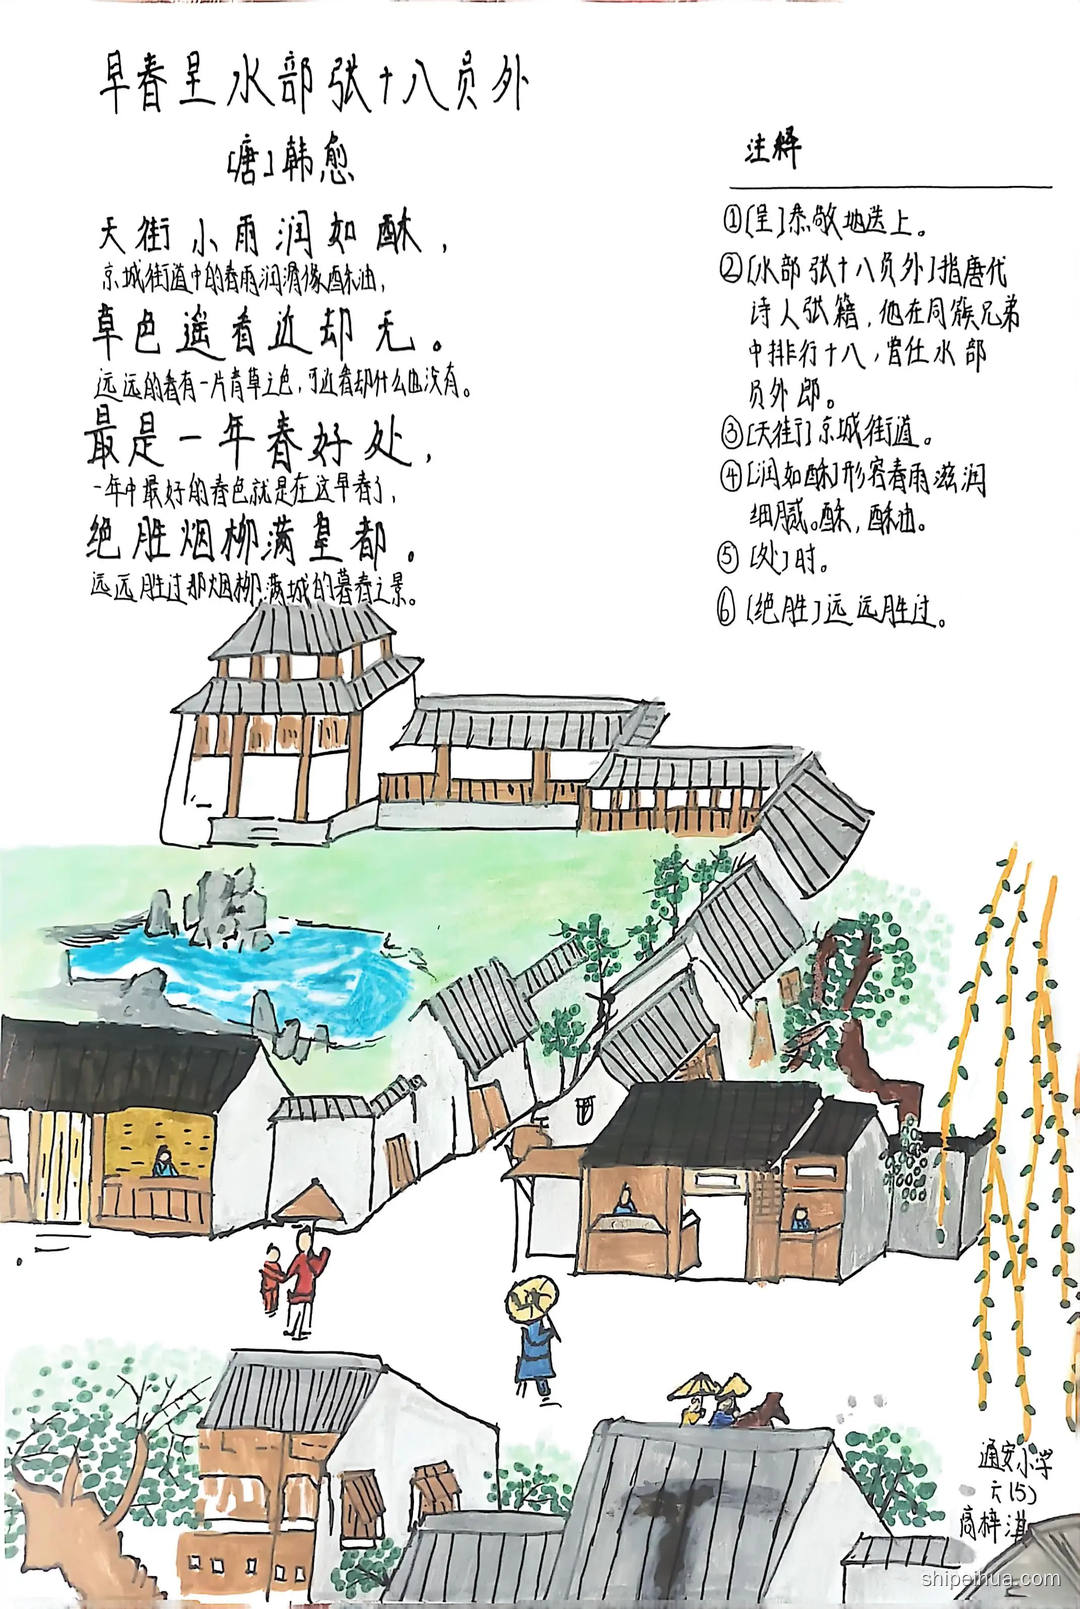 早春呈水部张十八员外
[唐]韩愈
天街小雨润如酥，
京城街道中的春雨润滑像酥油，
草色遥看近却无。
远远的看有一片青草之色，可近看却什么也没有。
最是一年春好处，
一年中最好的春色就是在这早春了，
绝胜烟柳满皇都。
远远胜过那烟柳满城的暮春之景。
注释
①[呈]恭敬地送上。
②[水部张十八员外]指唐代
诗人张籍，他在同族兄弟
中排行十八，曾任水部
员外郎。
③[天街]京城街道。
④[润如酥]形容春雨滋润
细腻。酥，酥油。
⑤[处]时。
⑥[绝胜]远远胜过。
通安小学
六(5)
高梓淇
shipeihua.com